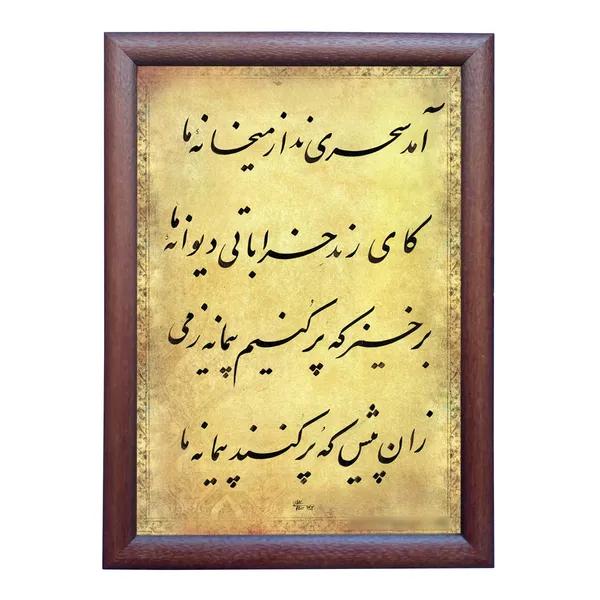 آمد سحری ندا ز میخانهٔ ما
کای رند خراباتی دیوانهٔ ما
برخیز که پُر کنیم پیمانه ز می
زان پیش که پُر کنند پیمانه ما